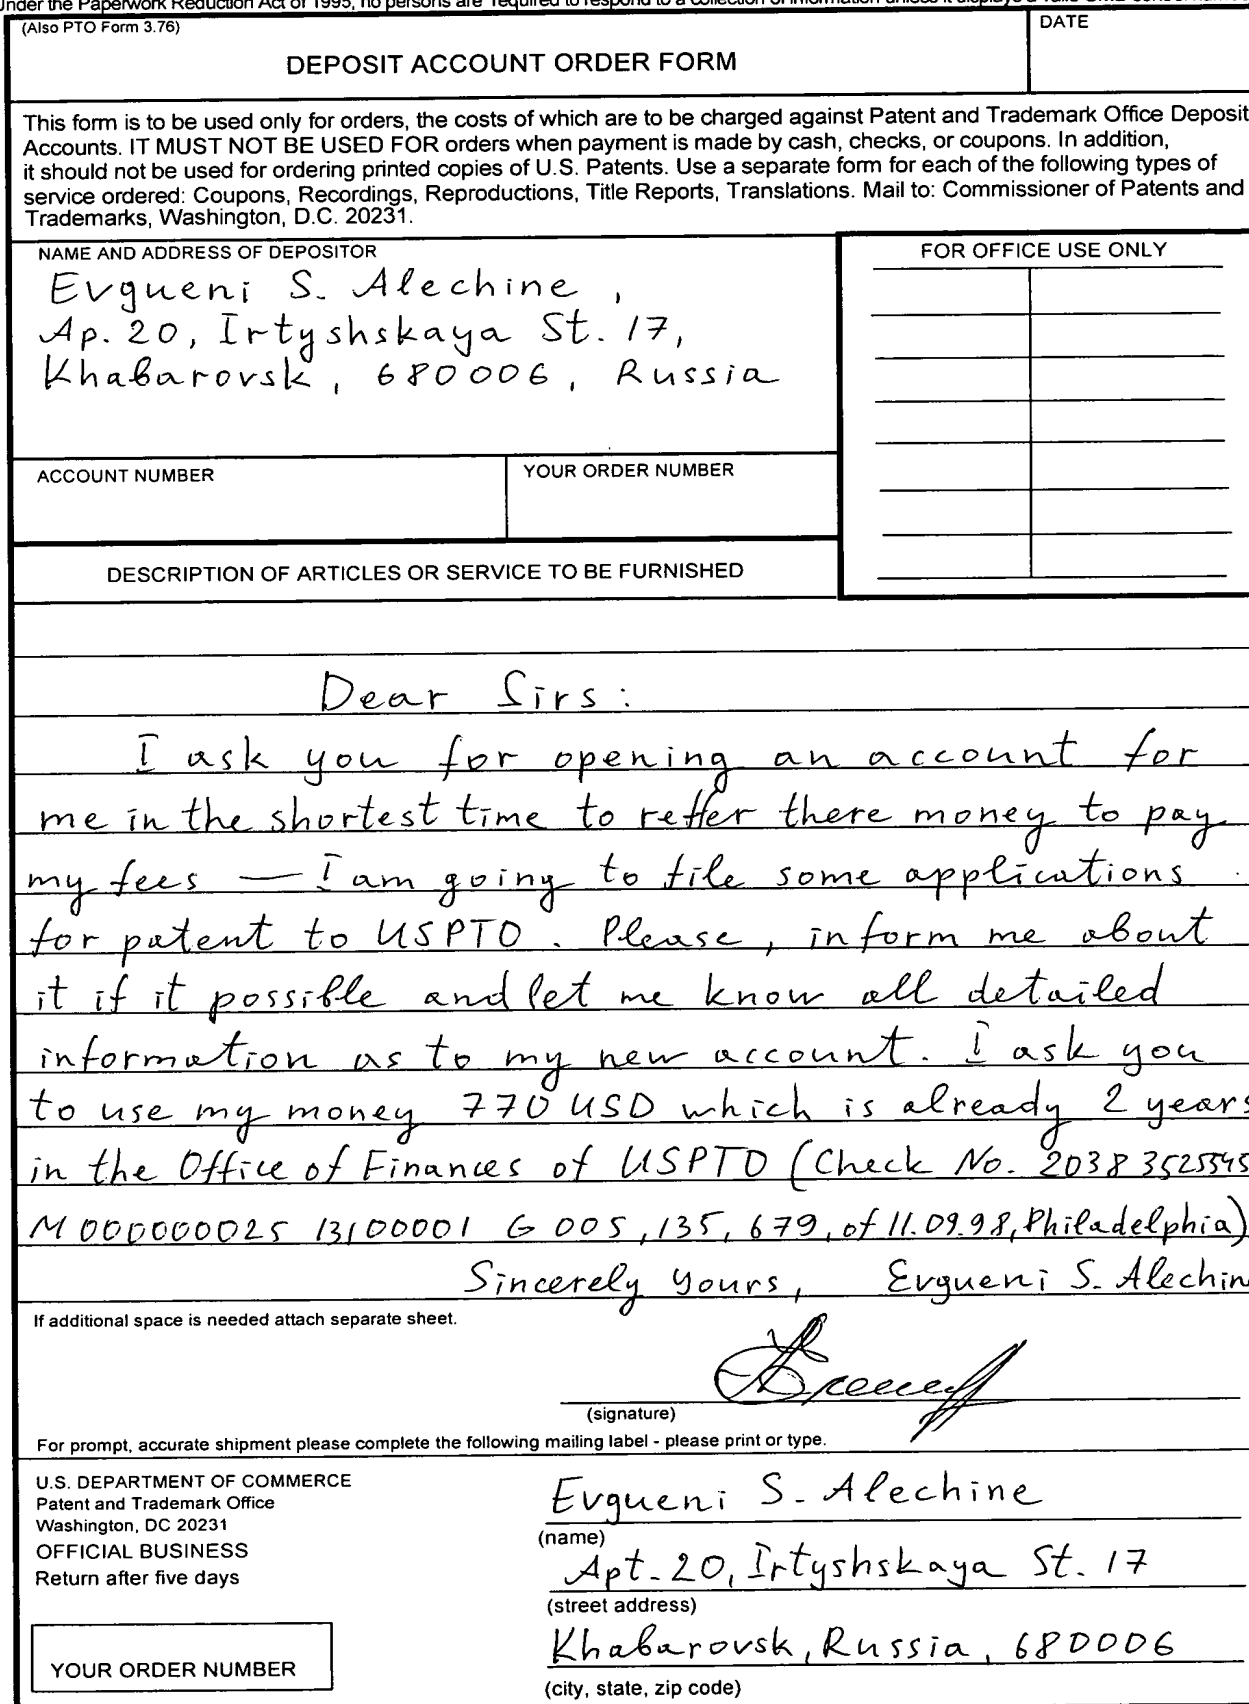 Under the Paperwork Reduction Act of 1995, no persons are required to respond to a collection of information unless it displays a valid OMB
(Also PTO Form 3.76)
DATE
DEPOSIT ACCOUNT ORDER FORM
This form is to be used only for orders, the costs of which are to be charged against Patent and Trademark Office Deposit
Accounts. IT MUST NOT BE USED FOR orders when payment is made by cash, checks, or coupons. In addition,
it should not be used for ordering printed copies of U.S. Patents. Use a separate form for each of the following types of
service ordered: Coupons, Recordings, Reproductions, Title Reports, Translations. Mail to: Commissioner of Patents and
Trademarks, Washington, D.C. 20231.
NAME AND ADDRESS OF DEPOSITOR
Evgueni S. Alechine,
Ap. 20, Irtyshskaya St. 17,
Khabarovsk, 680006, Russia
FOR OFFICE USE ONLY
ACCOUNT NUMBER
YOUR ORDER NUMBER
DESCRIPTION OF ARTICLES OR SERVICE TO BE FURNISHED
Dear Sirs:
I ask you for opening an account for
me in the shortest time to reffer there money to pay
my fees — I am going to file some applications
for patent to USPTO. Please, inform me about
it if it possible and let me know all detailed
information as to my new account. I ask you
to use my money 770 USD which is already 2 years
in the Office of Finances of USPTO (Check No. 2038 3525545
M 000000025 13100001 G 005,135,679, of 11.09.98, Philadelphia)
Sincerely yours, Evgueni S. Alechin
If additional space is needed attach separate sheet.
(signature)
For prompt, accurate shipment please complete the following mailing label - please print or type.
U.S. DEPARTMENT OF COMMERCE
Patent and Trademark Office
Washington, DC 20231
OFFICIAL BUSINESS
Return after five days
YOUR ORDER NUMBER
Evgueni S. Alechine
(name)
Apt. 20, Irtyshskaya St. 17
(street address)
Khabarovsk, Russia, 680006
(city, state, zip code)